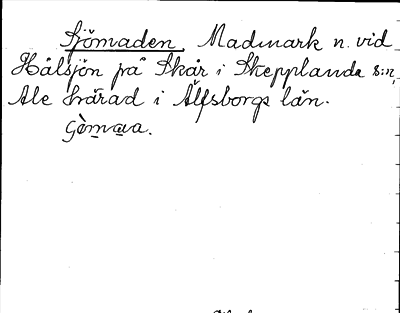 Sjömaden. Madmark n. vid
Hålsjön på Skår i Skepplanda s:n,
Ale härad i Älfsborgs län.